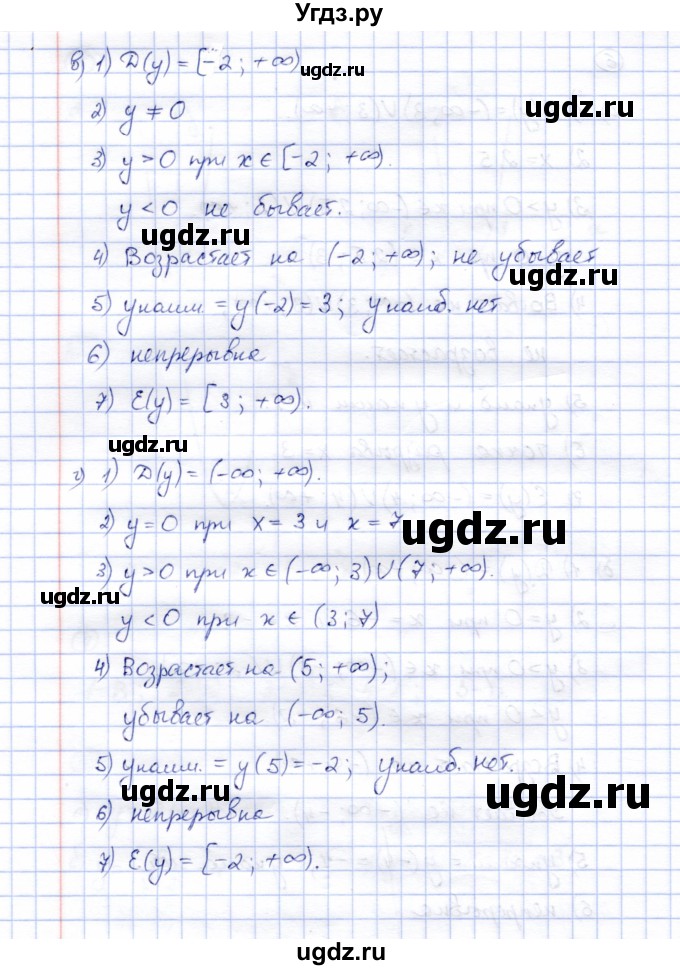 Угдз.ру
в) 1) D(y) = [-2; +∞)
ugdz.ru
2) y ≠ 0
ugdz.ru
3) y > 0 при x ∈ [-2; +∞).
y < 0 не бывает.
ugdz.ru
ugdz.ru
4) Возрастает на (-2; +∞); не убывает
5) yнаим = y(-2) = 3; yнаиб. нет
6) непрерывна
7) E(y) = [3; +∞).
ugdz.ru
г) 1) D(y) = (-∞; +∞).
2) y = 0 при x = 3 и x = 7
ugdz.ru
3) y > 0 при x ∈ (-∞; 3) U (7; +∞).
ugdz.ru
y < 0 при x ∈ (3; 7)
4) Возрастает на (5; +∞);
убывает на (-∞; 5).
5) yнаим. = y(5) = -2; yнаиб. нет.
ugdz.ru
ugdz.ru
6) непрерывна
7) E(y) = [-2; +∞).
ugdz.ru